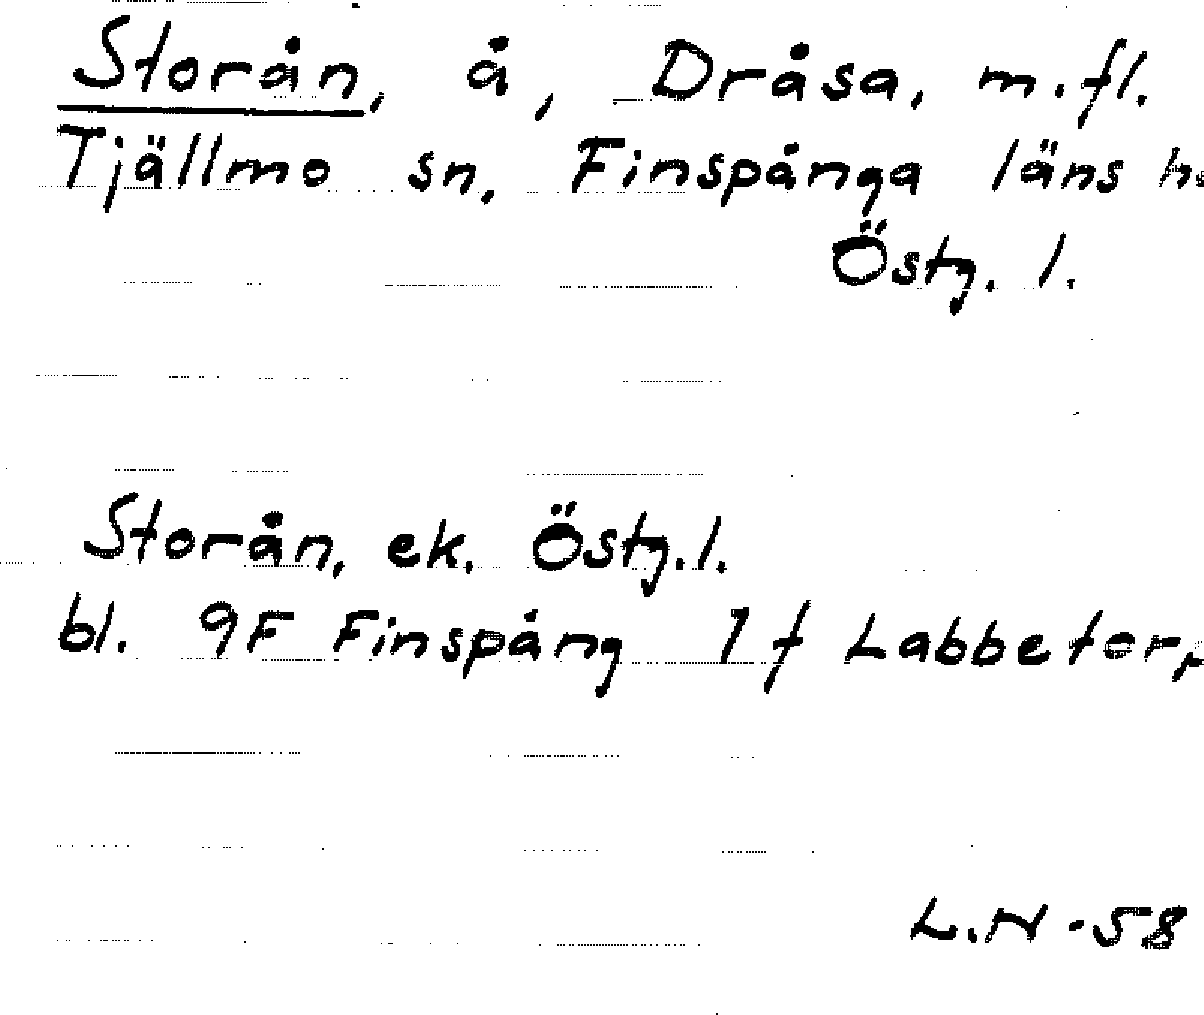 Storån, å, Dråsa, m.fl.
Tjällmo sn, Finspånga läns
Östg. l.
Storån, ek. Östg.l.
bl. 9F Finspång 7f Labbetorp
L.N -58